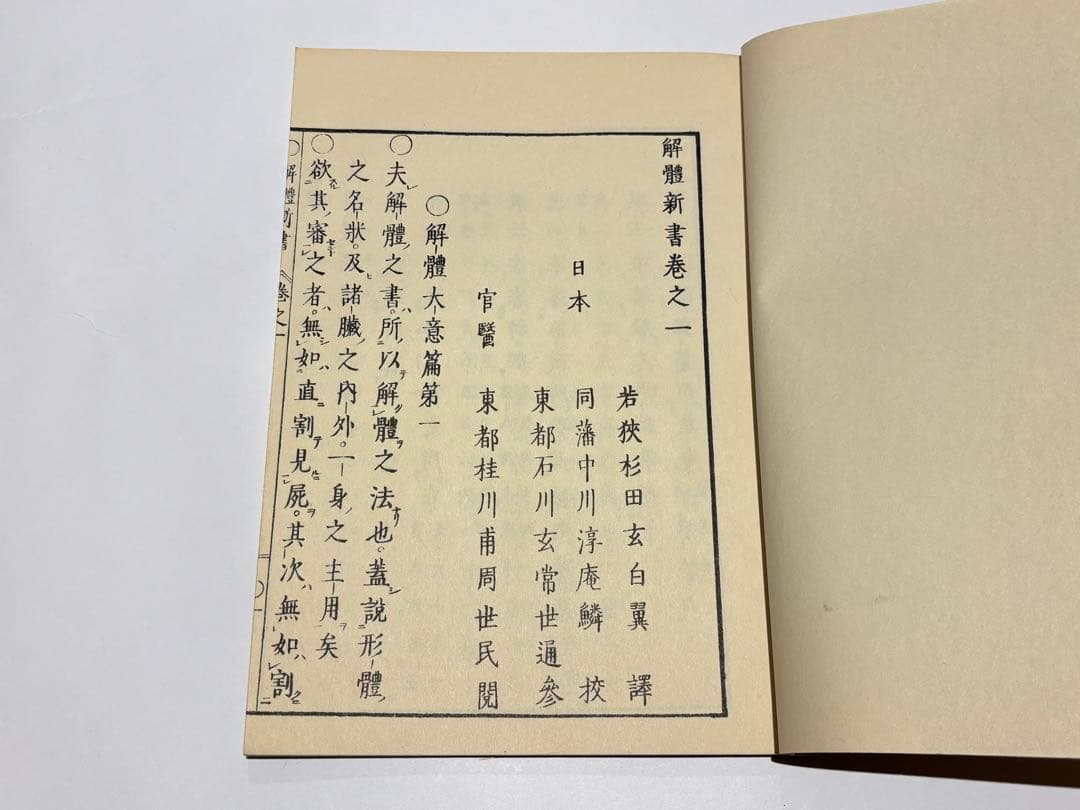 解體新書卷之一
若狹杉田玄白翼　譯
日本　同藩中川淳庵鱗　挍
東都石川玄常世通參
官醫　東都桂川甫周世民閲
〇解體大意篇第一
〇夫解體之書。所以解體之法也。蓋說形體
之名狀。及諸臟之內外。一身之主用矣
〇欲其審之者。無如直割見屍。其次無如割
〇解體新書　卷之一